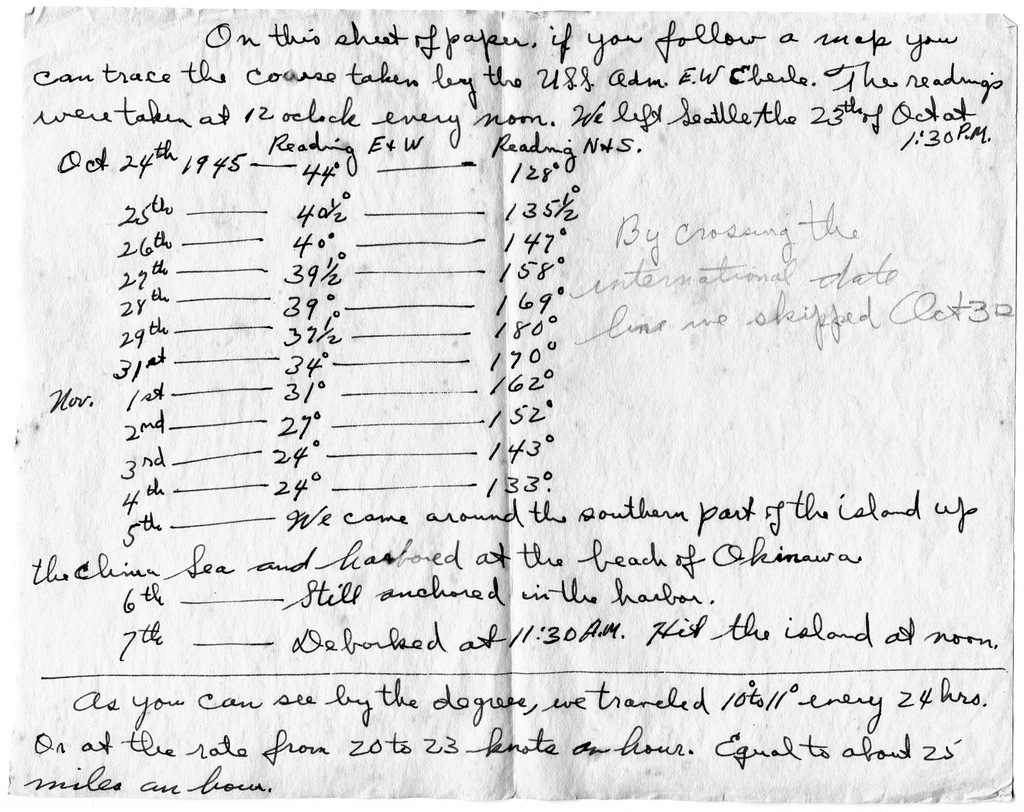 On this sheet of paper, if you follow a map you
can trace the course taken by the U.S.S. Adm. E.W Eberle. The readings
were taken at 12 oclock every noon. We left Seattle the 23th of Oct at
1:30 P.M.
Reading E & W Reading N & S.
Oct 24th 1945 — 44° — 128°
25th — 40½° — 135½°
26th — 40° — 147°
27th — 39½° — 158°
28th — 39° — 169°
29th — 37½° — 180°
31st — 34° — 170°
Nov. 1st — 31° — 162°
2nd — 27° — 152°
3rd — 24° — 143°
4th — 24° — 133°.
By crossing the
international date
line we skipped Oct 30
5th — We came around the southern part of the island up
the China Sea and harbored at the beach of Okinawa
6th — Still anchored in the harbor.
7th — Debarked at 11:30 A.M. Hit the island at noon.
As you can see by the degrees, we traveled 10° to 11° every 24 hrs.
Or at the rate from 20 to 23 knots an hour. Equal to about 25
miles an hour.